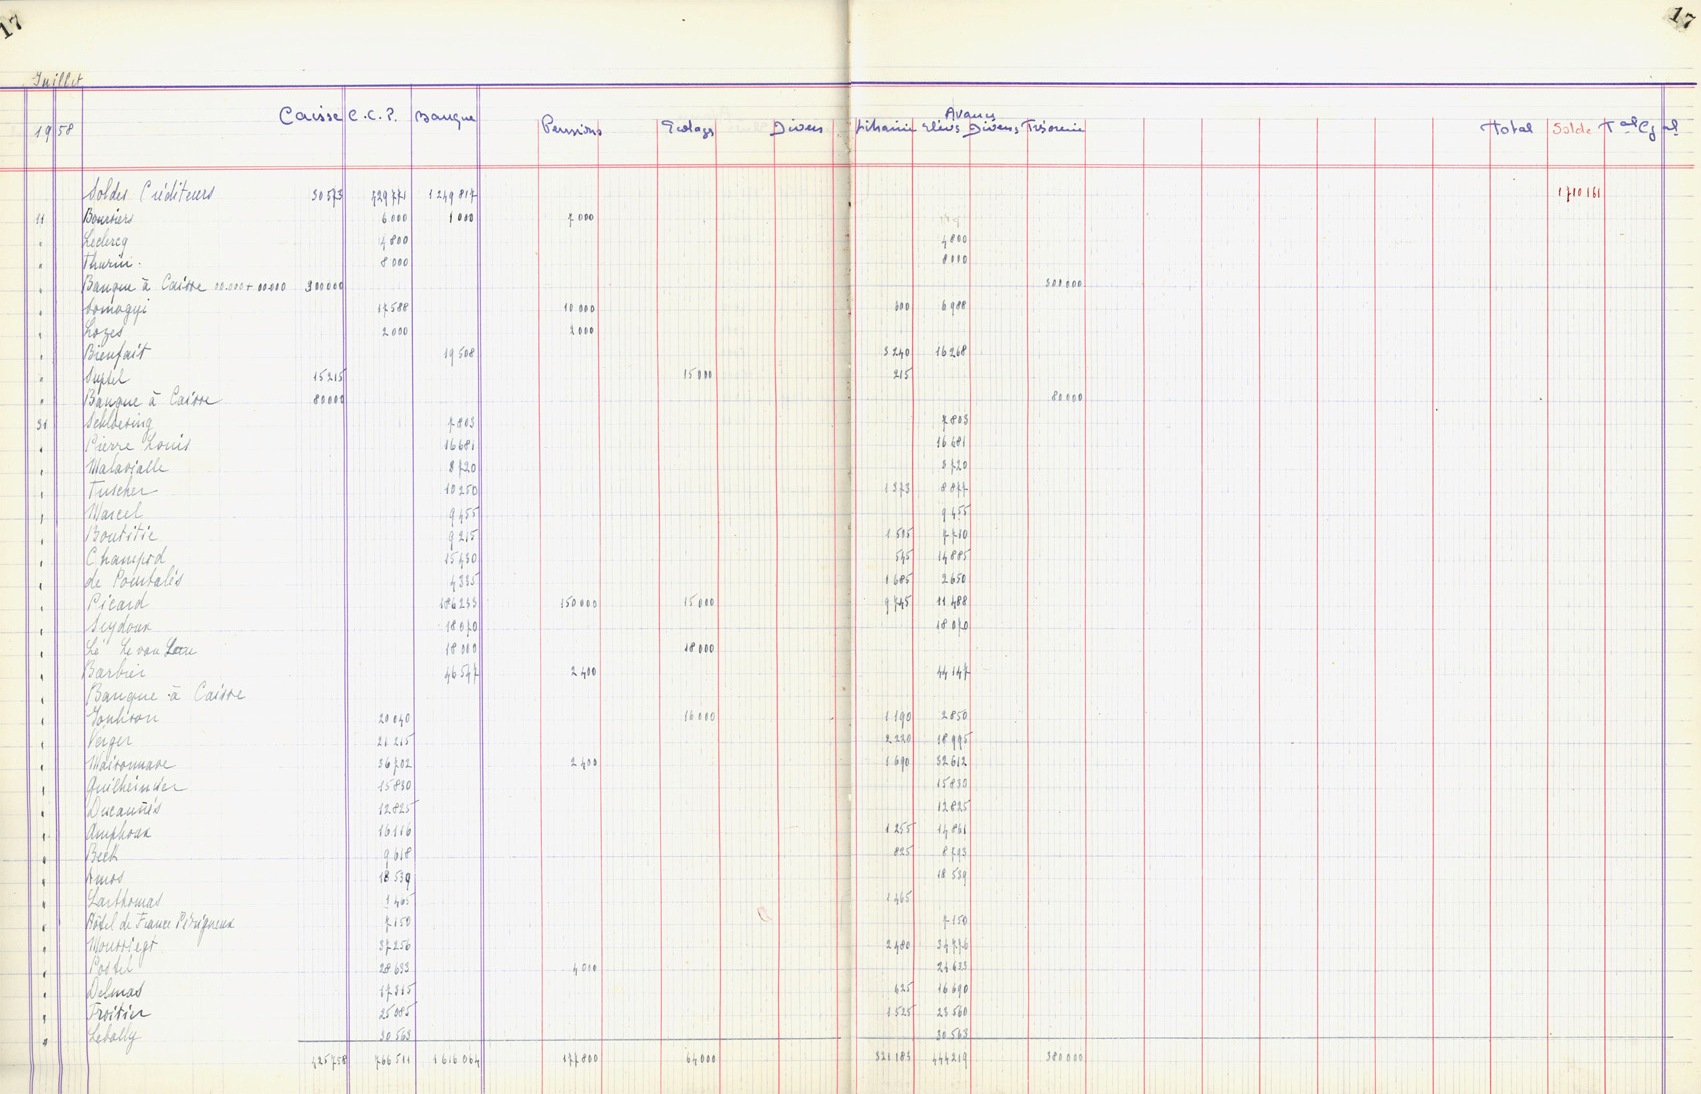 17 17
Juillet
Avances
Caisse C.C.P. Banque
1958 Pensions Ecolages Divers Librairie Elèves Divers Trésorerie Total Solde Tal Cgal
Soldes Créditeurs 30573 529771 1249817 1710161
11 Boursiers 6000 1000 7000
" Leclercq 4800 4800
" Thurin 8000 8000
" Banque à Caisse 300000 300000
" Somogyi 17588 10000 600 6988
" Lozes 2000 2000
" Bienfait 19508 3240 16268
" 15215 15000 215
" Banque à Caisse 80000 80000
31 Schloesing 7803 7803
" Pierre Louis 16681 16681
" Malavialle 8720 8720
" Tuscher 10250 1373 8877
" Marcel 9455 9455
" Boutitie 9215 1505 7710
" Champod 15430 545 14885
" de Pourtalès 4335 1685 2650
" Picard 186233 150000 15000 9745 11488
" Seydoux 18070 18070
" Lê Le van 18000 18000
" Barbier 46547 2400 44147
" Banque à Caisse
" 20040 16000 1190 2850
" Verger 21215 2220 18995
" Maisonnave 36702 2400 1690 32612
" 15830 15830
" 12825 12825
" Amphoux 16116 1255 14861
" Beck 9618 825 8793
" Amos 18539 18539
" Larthomas 1465 1465
" Hôtel de France Périgueux 7150 7150
" 37256 2480 34776
" Postel 28633 4000 24633
" Delmas 17315 625 16690
" Froitier 25085 1525 23560
" 30563 30563
425758 766511 1616064 177800 64000 444219 380000